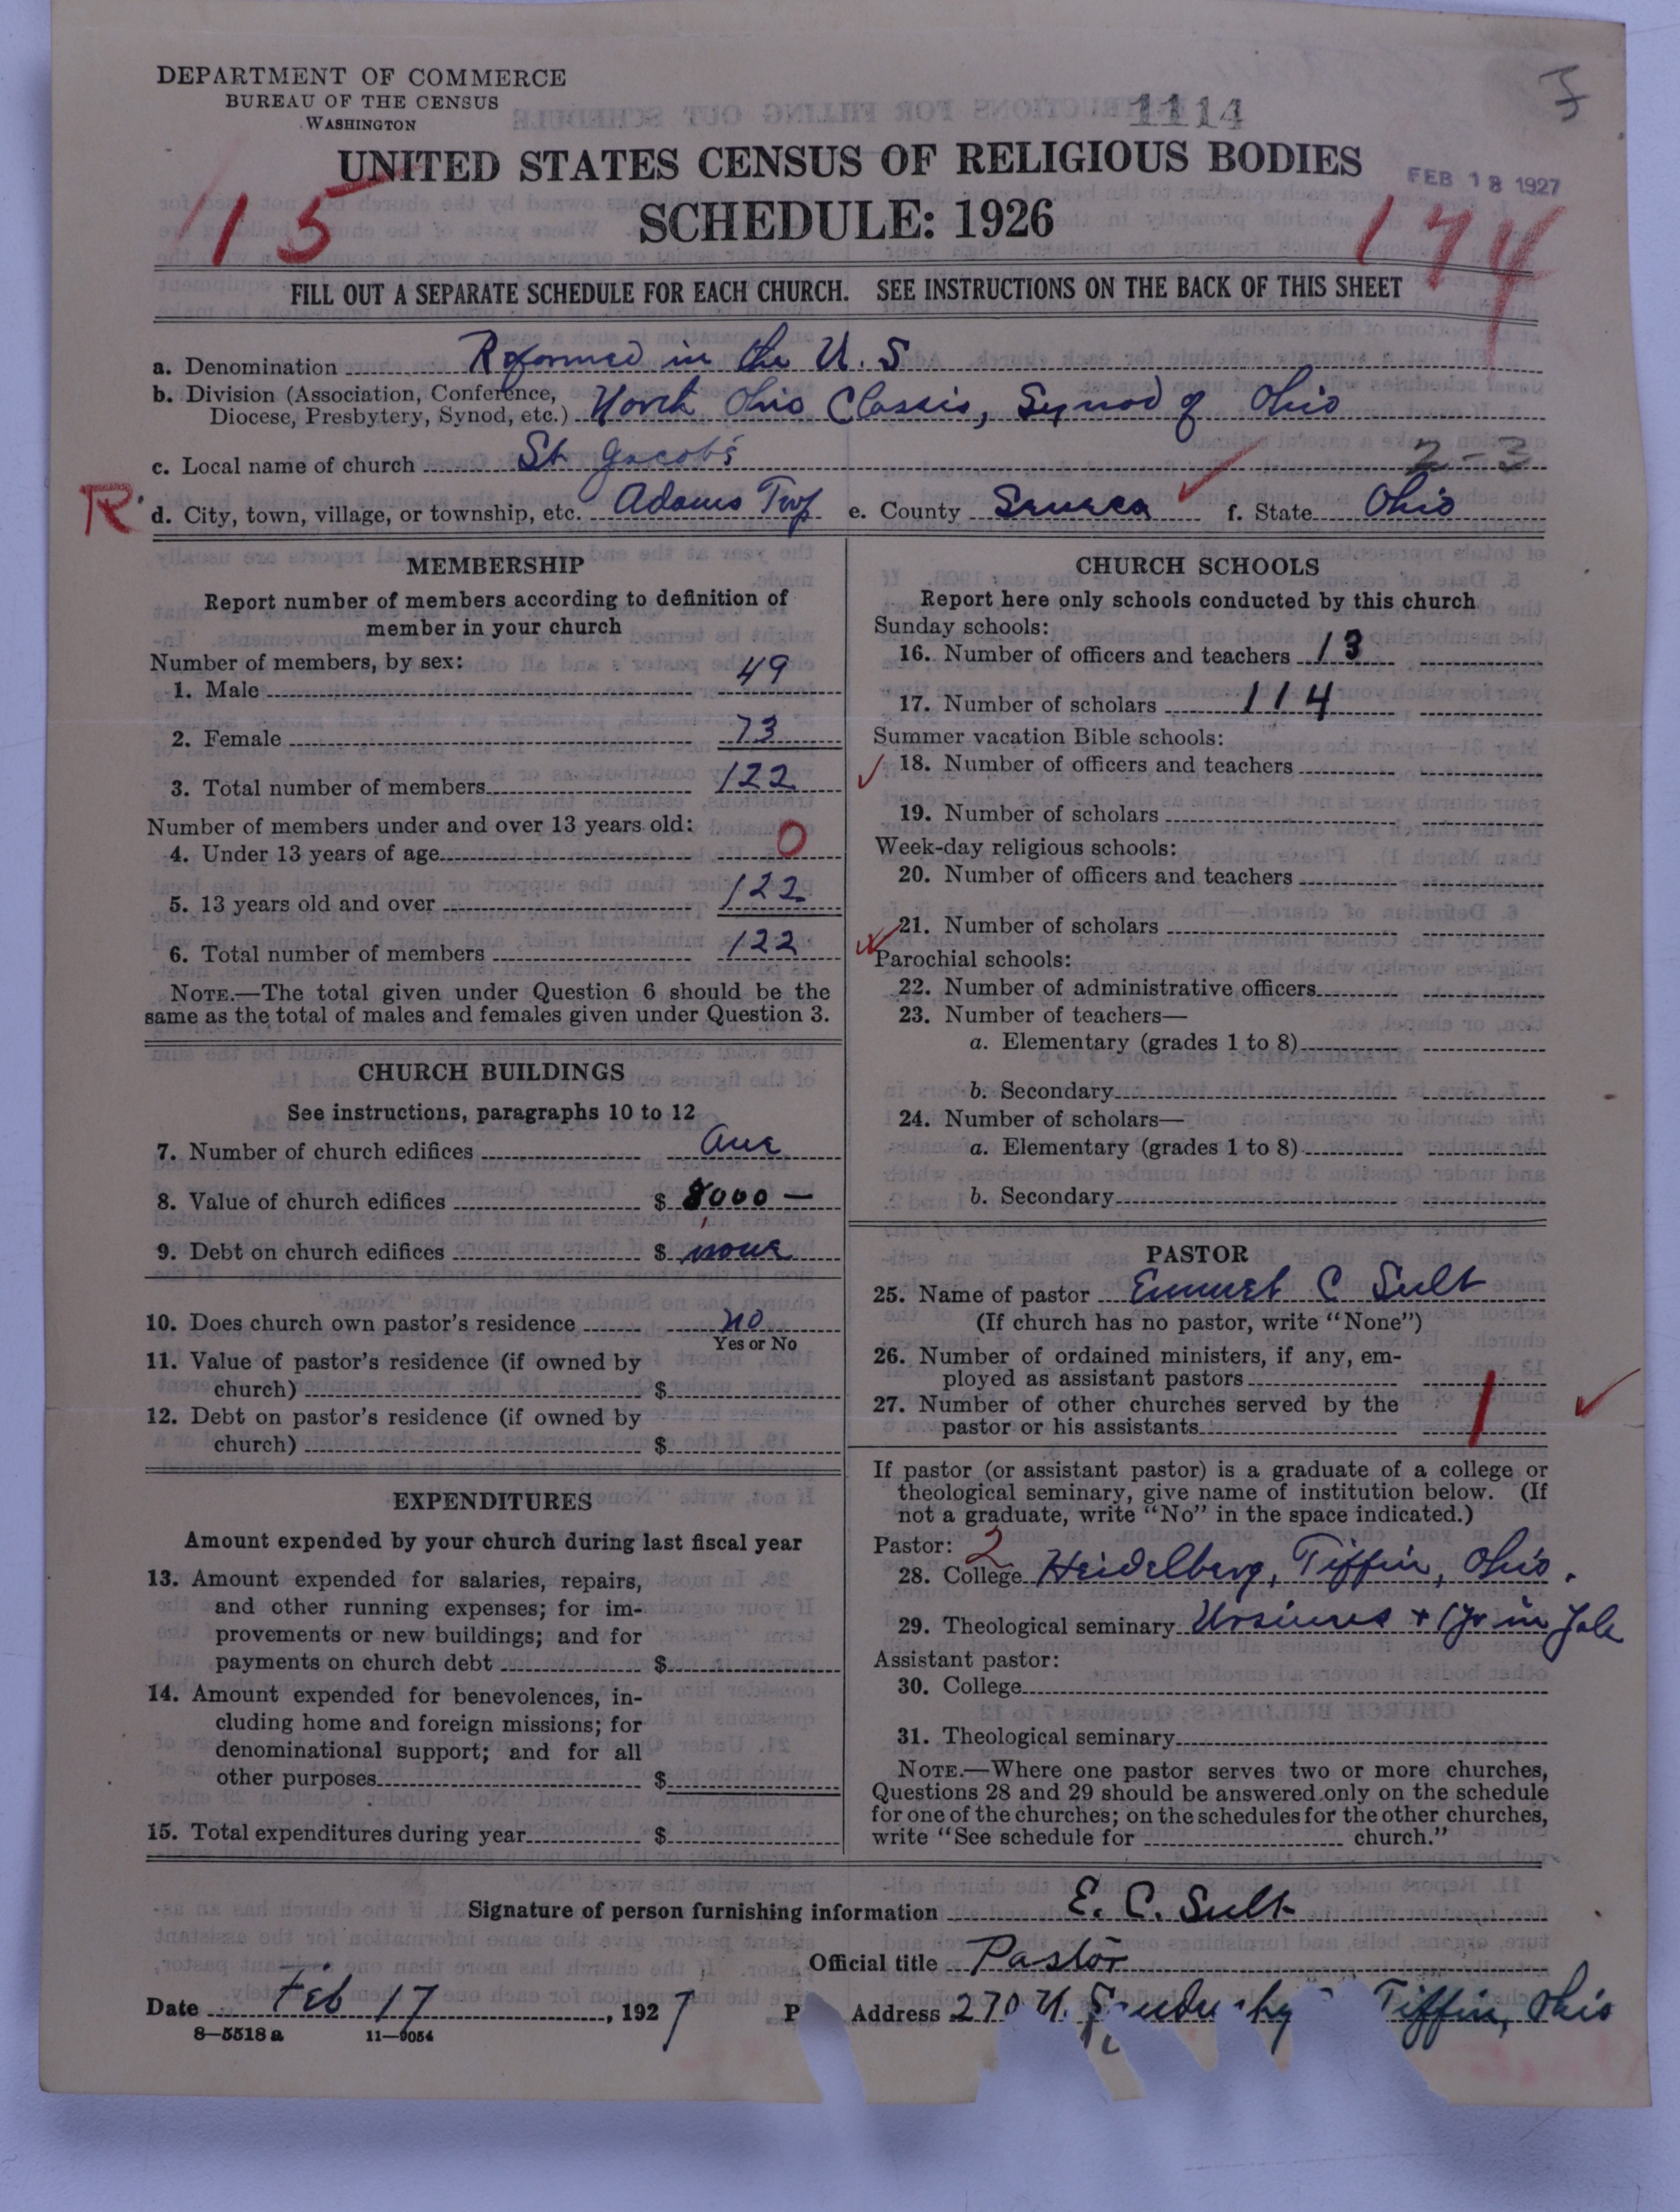 DEPARTMENT OF COMMERCE
BUREAU OF THE CENSUS
WASHINGTON
1114
UNITED STATES CENSUS OF RELIGIOUS BODIES
FEB 18 1927
SCHEDULE: 1926
15
174
FILL OUT A SEPARATE SCHEDULE FOR EACH CHURCH. SEE INSTRUCTIONS ON THE BACK OF THIS SHEET
a. Denomination Reformed in the U. S
b. Division (Association, Conference,
Diocese, Presbytery, Synod, etc.) North Ohio Classis, Synod of Ohio
c. Local name of church St Jacob's 2-3
R d. City, town, village, or township, etc. Adams Twp e. County Seneca f. State Ohio
MEMBERSHIP
Report number of members according to definition of
member in your church
Number of members, by sex:
1. Male 49
2. Female 73
3. Total number of members 122
Number of members under and over 13 years old:
4. Under 13 years of age 0
5. 13 years old and over 122
6. Total number of members 122
NOTE.—The total given under Question 6 should be the
same as the total of males and females given under Question 3.
CHURCH BUILDINGS
See instructions, paragraphs 10 to 12
7. Number of church edifices One
8. Value of church edifices $ 8000 —
9. Debt on church edifices $ none
10. Does church own pastor's residence no
Yes or No
11. Value of pastor's residence (if owned by
church) $
12. Debt on pastor's residence (if owned by
church) $
EXPENDITURES
Amount expended by your church during last fiscal year
13. Amount expended for salaries, repairs,
and other running expenses; for im-
provements or new buildings; and for
payments on church debt $
14. Amount expended for benevolences, in-
cluding home and foreign missions; for
denominational support; and for all
other purposes $
15. Total expenditures during year $
CHURCH SCHOOLS
Report here only schools conducted by this church
Sunday schools:
16. Number of officers and teachers 13
17. Number of scholars 114
Summer vacation Bible schools:
18. Number of officers and teachers
19. Number of scholars
Week-day religious schools:
20. Number of officers and teachers
21. Number of scholars
Parochial schools:
22. Number of administrative officers
23. Number of teachers—
a. Elementary (grades 1 to 8)
b. Secondary
24. Number of scholars—
a. Elementary (grades 1 to 8)
b. Secondary
PASTOR
25. Name of pastor Emmet C Sult
(If church has no pastor, write "None")
26. Number of ordained ministers, if any, em-
ployed as assistant pastors
27. Number of other churches served by the
pastor or his assistants 1
If pastor (or assistant pastor) is a graduate of a college or
theological seminary, give name of institution below. (If
not a graduate, write "No" in the space indicated.)
Pastor: 2
28. College Heidelberg, Tiffin, Ohio.
29. Theological seminary Ursinus + 1 yr in Yale
Assistant pastor:
30. College
31. Theological seminary
NOTE.—Where one pastor serves two or more churches,
Questions 28 and 29 should be answered only on the schedule
for one of the churches; on the schedules for the other churches,
write "See schedule for church."
Signature of person furnishing information E. C. Sult
Official title Pastor
Date Feb 17, 1927 P Address 270 N. Tiffin, Ohio
8—5518 a 11—9054